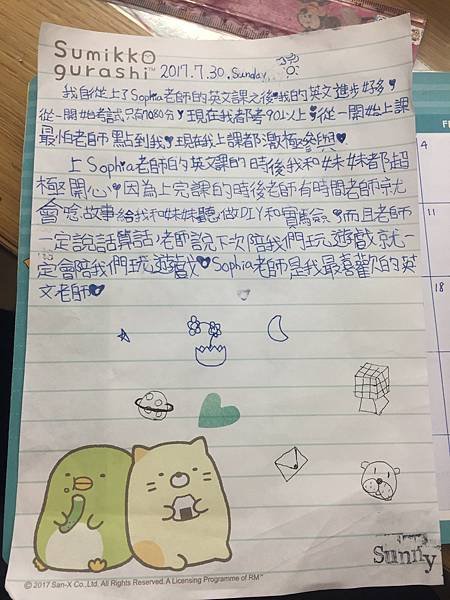 Sumikko
gurashi™ 2017.7.30.Sunday.
我自從上了Sophia老師的英文課之後,我的英文進步好多,
從一開始考試只有7080分,現在我都考90以上,從一開始上課
最怕老師點到我,現在我上課都激極參與
上Sophia老師的英文課的時後我和妹妹都超
極開心,因為上完課的時後老師有時間老師就
會唸故事給我和妹妹聽,做DIY和實馬僉,而且老師
一定說話算話,老師說下次陪我們玩遊戲就一
定會陪我們玩遊戲,Sophia老師是我最喜歡的英
文老師
Sunny
© 2017 San-X Co., Ltd. All Rights Reserved. A Licensing Programme of RM
4
11
18